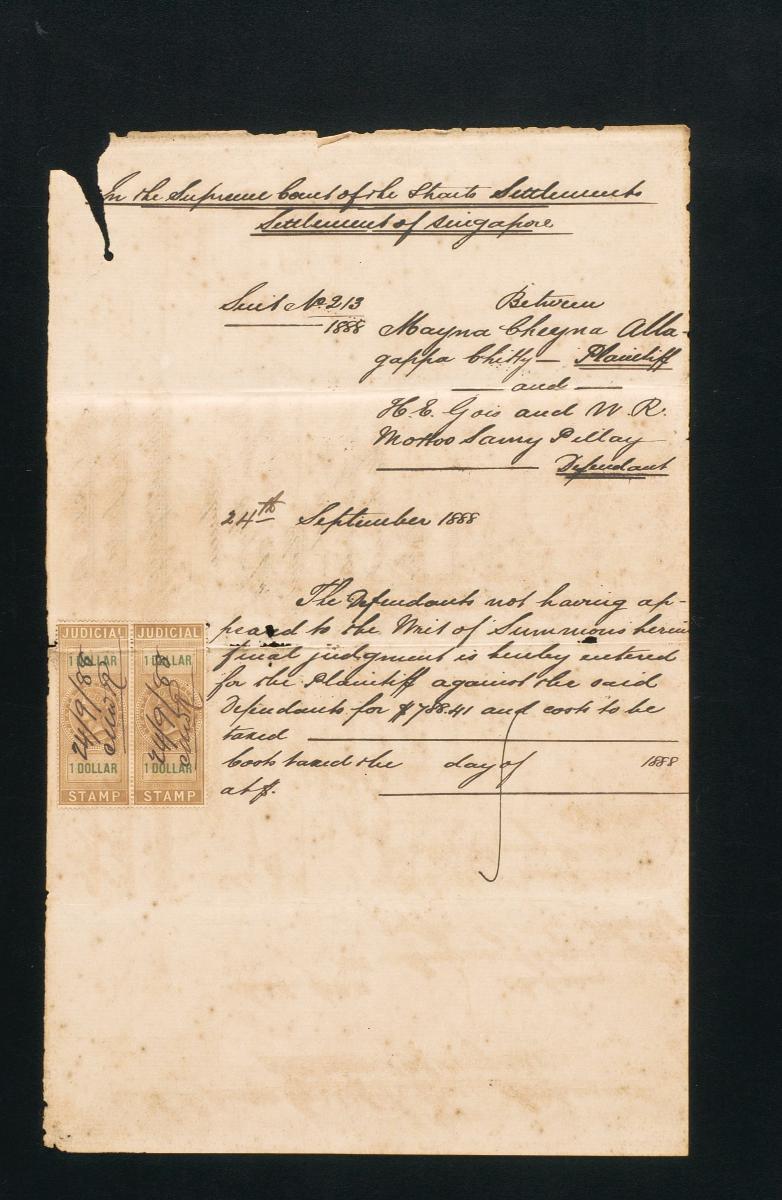 In the Supreme Court of the Straits Settlements
Settlement of Singapore
Suit No. 213
1888
Between
Mayna Cheyna Alla-
gappa Chitty — Plaintiff
and
H. E. Gois and W. R.
Mottoo Samy Pillay
Defendant
24th September 1888
The Defendants not having ap-
peared to the Writ of Summons herein
final judgment is hereby entered
for the Plaintiff against the said
Defendants for $788.41 and costs to be
taxed
Costs taxed the day of 1888
at $.
JUDICIAL JUDICIAL
1 DOLLAR 1 DOLLAR
24/9/88 24/9/88
1 DOLLAR 1 DOLLAR
STAMP STAMP